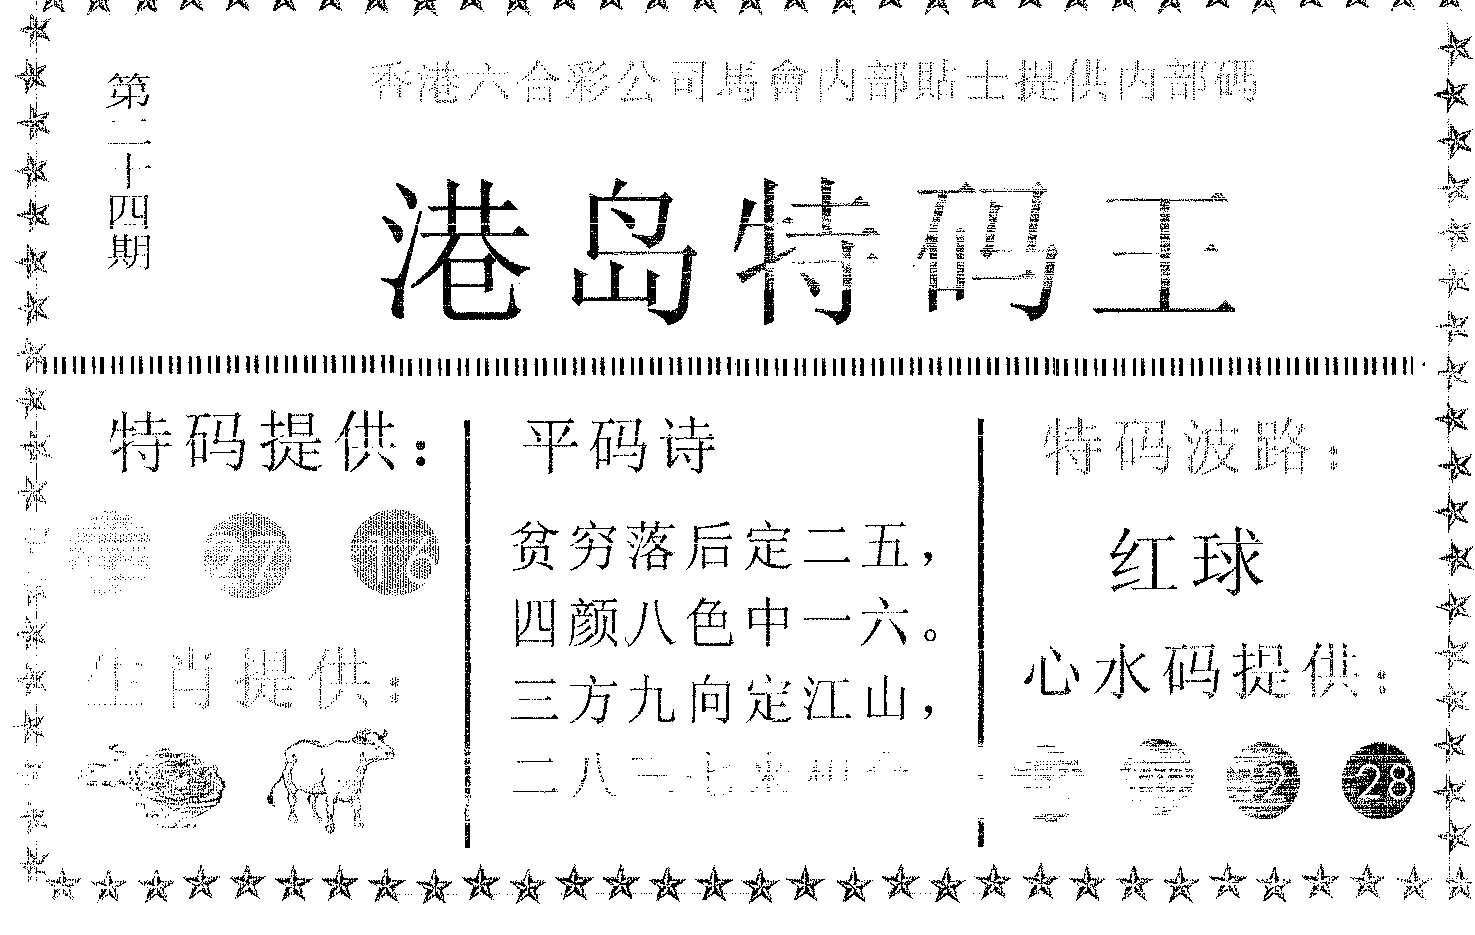 香港六合彩公司馬會内部貼士提供内部碼
第二十四期
港岛特码王
特码提供：
27 16
生肖提供：
平码诗
贫穷落后定二五，
四颜八色中一六。
三方九向定江山，
二八三七来相合
特码波路：
红球
心水码提供：
28